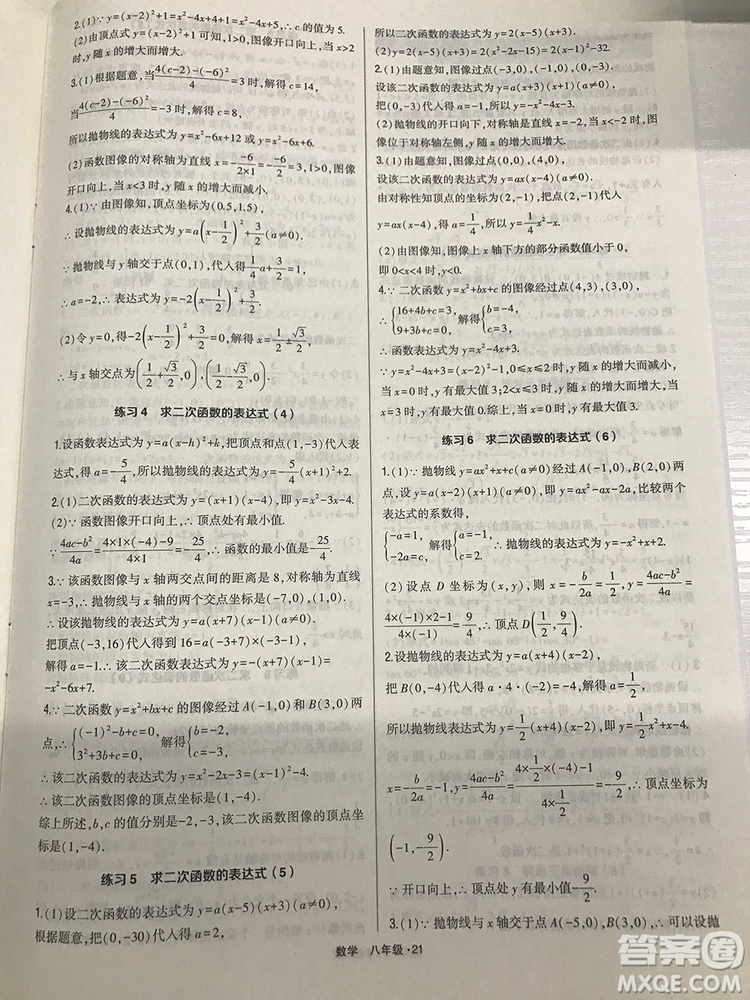 2.(1)∵y=x²-4x+c+1=x²-4x+4+1=x²-4x+5,∴c的值为2.
(2)由顶点式y=(x-2)²+1,得a=1>0,图像开口向上,当x>2
时,y随x的增大而增大.
3.(1)根据题意,当 4(c-2)-(-6)²/4 =3时,解得c=14,
当 4(c-2)-(-6)²/4 =-3时,解得c=8,
所以抛物线的表达式为y=x²-6x+12或y=x²-6x+6.
(2)函数图像的对称轴为直线x=- -6/(2×1) =- -6/2 =3,1>0,图像
开口向上,当x<3时,y随x的增大而减小.
4.(1)∵由图像知,顶点坐标为(0.5,1.5),
∴设抛物线的表达式为y=a(x-1/2)²+3/2(a≠0).
∵抛物线与y轴交于点(0,1),代入表达式得1/4a+3/2=1,
∴a=-2,∴表达式为y=-2(x-1/2)²+3/2.
(2)令y=0,得0=-2(x-1/2)²+3/2,解得x=1/2±√3/2,
∴与x轴交点为(1/2+√3/2,0),(1/2-√3/2,0).
练习4 求二次函数的表达式(4)
1.设函数表达式为y=a(x-h)²+k,把顶点和点(1,-3)代入表
达式,得a=-5/4,所以抛物线的表达式为y=-5/4(x+1)²+2.
2.(1)二次函数的表达式为y=(x+1)(x-4),即y=x²-3x-4.
(2)∵函数图像开口向上,∴顶点处有最小值.
∵(4ac-b²)/4a=(4×1×(-4)-9)/(4×1)=-25/4,∴函数的最小值是-25/4.
3.∵该函数图像与x轴两交点间的距离是8,对称轴为直线
x=-3,∴抛物线与x轴的两个交点坐标为(-7,0),(1,0).
∴设该抛物线的表达式为y=a(x+7)(x-1)(a≠0),
把顶点(-3,16)代入得到16=a(-3+7)×(-3-1),
解得a=-1,∴该二次函数的表达式为y=-(x+7)(x-1)=
-x²-6x+7.
4.∵二次函数y=x²+bx+c的图像经过A(-1,0)和B(3,0)两
点,∴{1-b+c=0, 3²+3b+c=0, 解得{b=-2, c=-3.
∴该二次函数的表达式为y=x²-2x-3=(x-1)²-4,
∴该二次函数图像的顶点坐标是(1,-4).
综上所述,b,c的值分别是-2,-3,该二次函数图像的顶点坐标
是(1,-4).
练习5 求二次函数的表达式(5)
1.(1)设二次函数的表达式为y=a(x-5)(x+3)(a≠0),
根据题意,把(0,-30)代入得a=2,
所以二次函数的表达式为y=2(x-5)(x+3).
(2)y=2(x-5)(x+3)=2(x²-2x-15)=2(x-1)²-32.
2.(1)由题意知,图像过点(-3,0),(-1,0),(0,-3),
设该二次函数的表达式为y=a(x+3)(x+1)(a≠0),
把(0,-3)代入得a=-1,所以y=-x²-4x-3.
(2)抛物线的开口向下,对称轴是直线x=-2,当x<-2时,图
像位于对称轴左侧,y随x的增大而增大.
3.(1)由题意知,图像过点(0,0),(4,0),
设该二次函数的表达式为y=ax(x-4)(a≠0),
由对称性知顶点坐标为(2,-1),把点(2,-1)代入
y=ax(x-4),得a=1/4,所以y=1/4x²-x.
(2)由图像知,x轴下方的部分函数值小于0,
即0<x<4时,y<0.
4.∵二次函数y=x²+bx+c的图像经过点(4,3),(3,0),
∴{16+4b+c=3, 9+3b+c=0, 解得{b=-4, c=3.
∴函数表达式为y=x²-4x+3=(x-2)²-1,
∴当x<2时,y随x的增大而减小,∴0≤x≤1时,y随x的增大而减小,
当x=0时,y有最大值3;当x=1
时,y有最大值0.综上,当x=0时,y有最大值3.
练习6 求二次函数的表达式(6)
1.(1)∵抛物线y=ax²+x+c(a≠0)经过A(-1,0),B(2,0)两
点,∴设y=a(x-2)(x+1),即y=ax²-ax-2a,比较两个
表达式的系数得,
{-a=1, -2a=c, 解得{a=-1, c=2, ∴抛物线为y=-x²+x+2.
(2)设点D坐标为(x,y),则x=-b/2a=1/2,y=(4ac-b²)/4a=
(4×(-1)×2-1)/(4×(-1))=9/4,∴顶点D(1/2,9/4).
2.设抛物线的表达式为y=a(x+4)(x-2)(a≠0),
把C(0,-4)代入得a·4·(-2)=-4,解得a=1/2,
所以抛物线表达式为y=1/2(x+4)(x-2),即y=1/2x²+x-4.
x=-b/2a=-1/(2×1/2)=-1,y=(4ac-b²)/4a=(4×1/2×(-4)-1)/(4×1/2)=-9/2,∴顶点坐标为
(-1,-9/2).
∵开口向上,∴顶点处y有最小值为-9/2.
3.(1)∵抛物线与x轴交于点A(-5,0),∴可以设抛
数学 八年级·21
答案圈
MXQE.COM